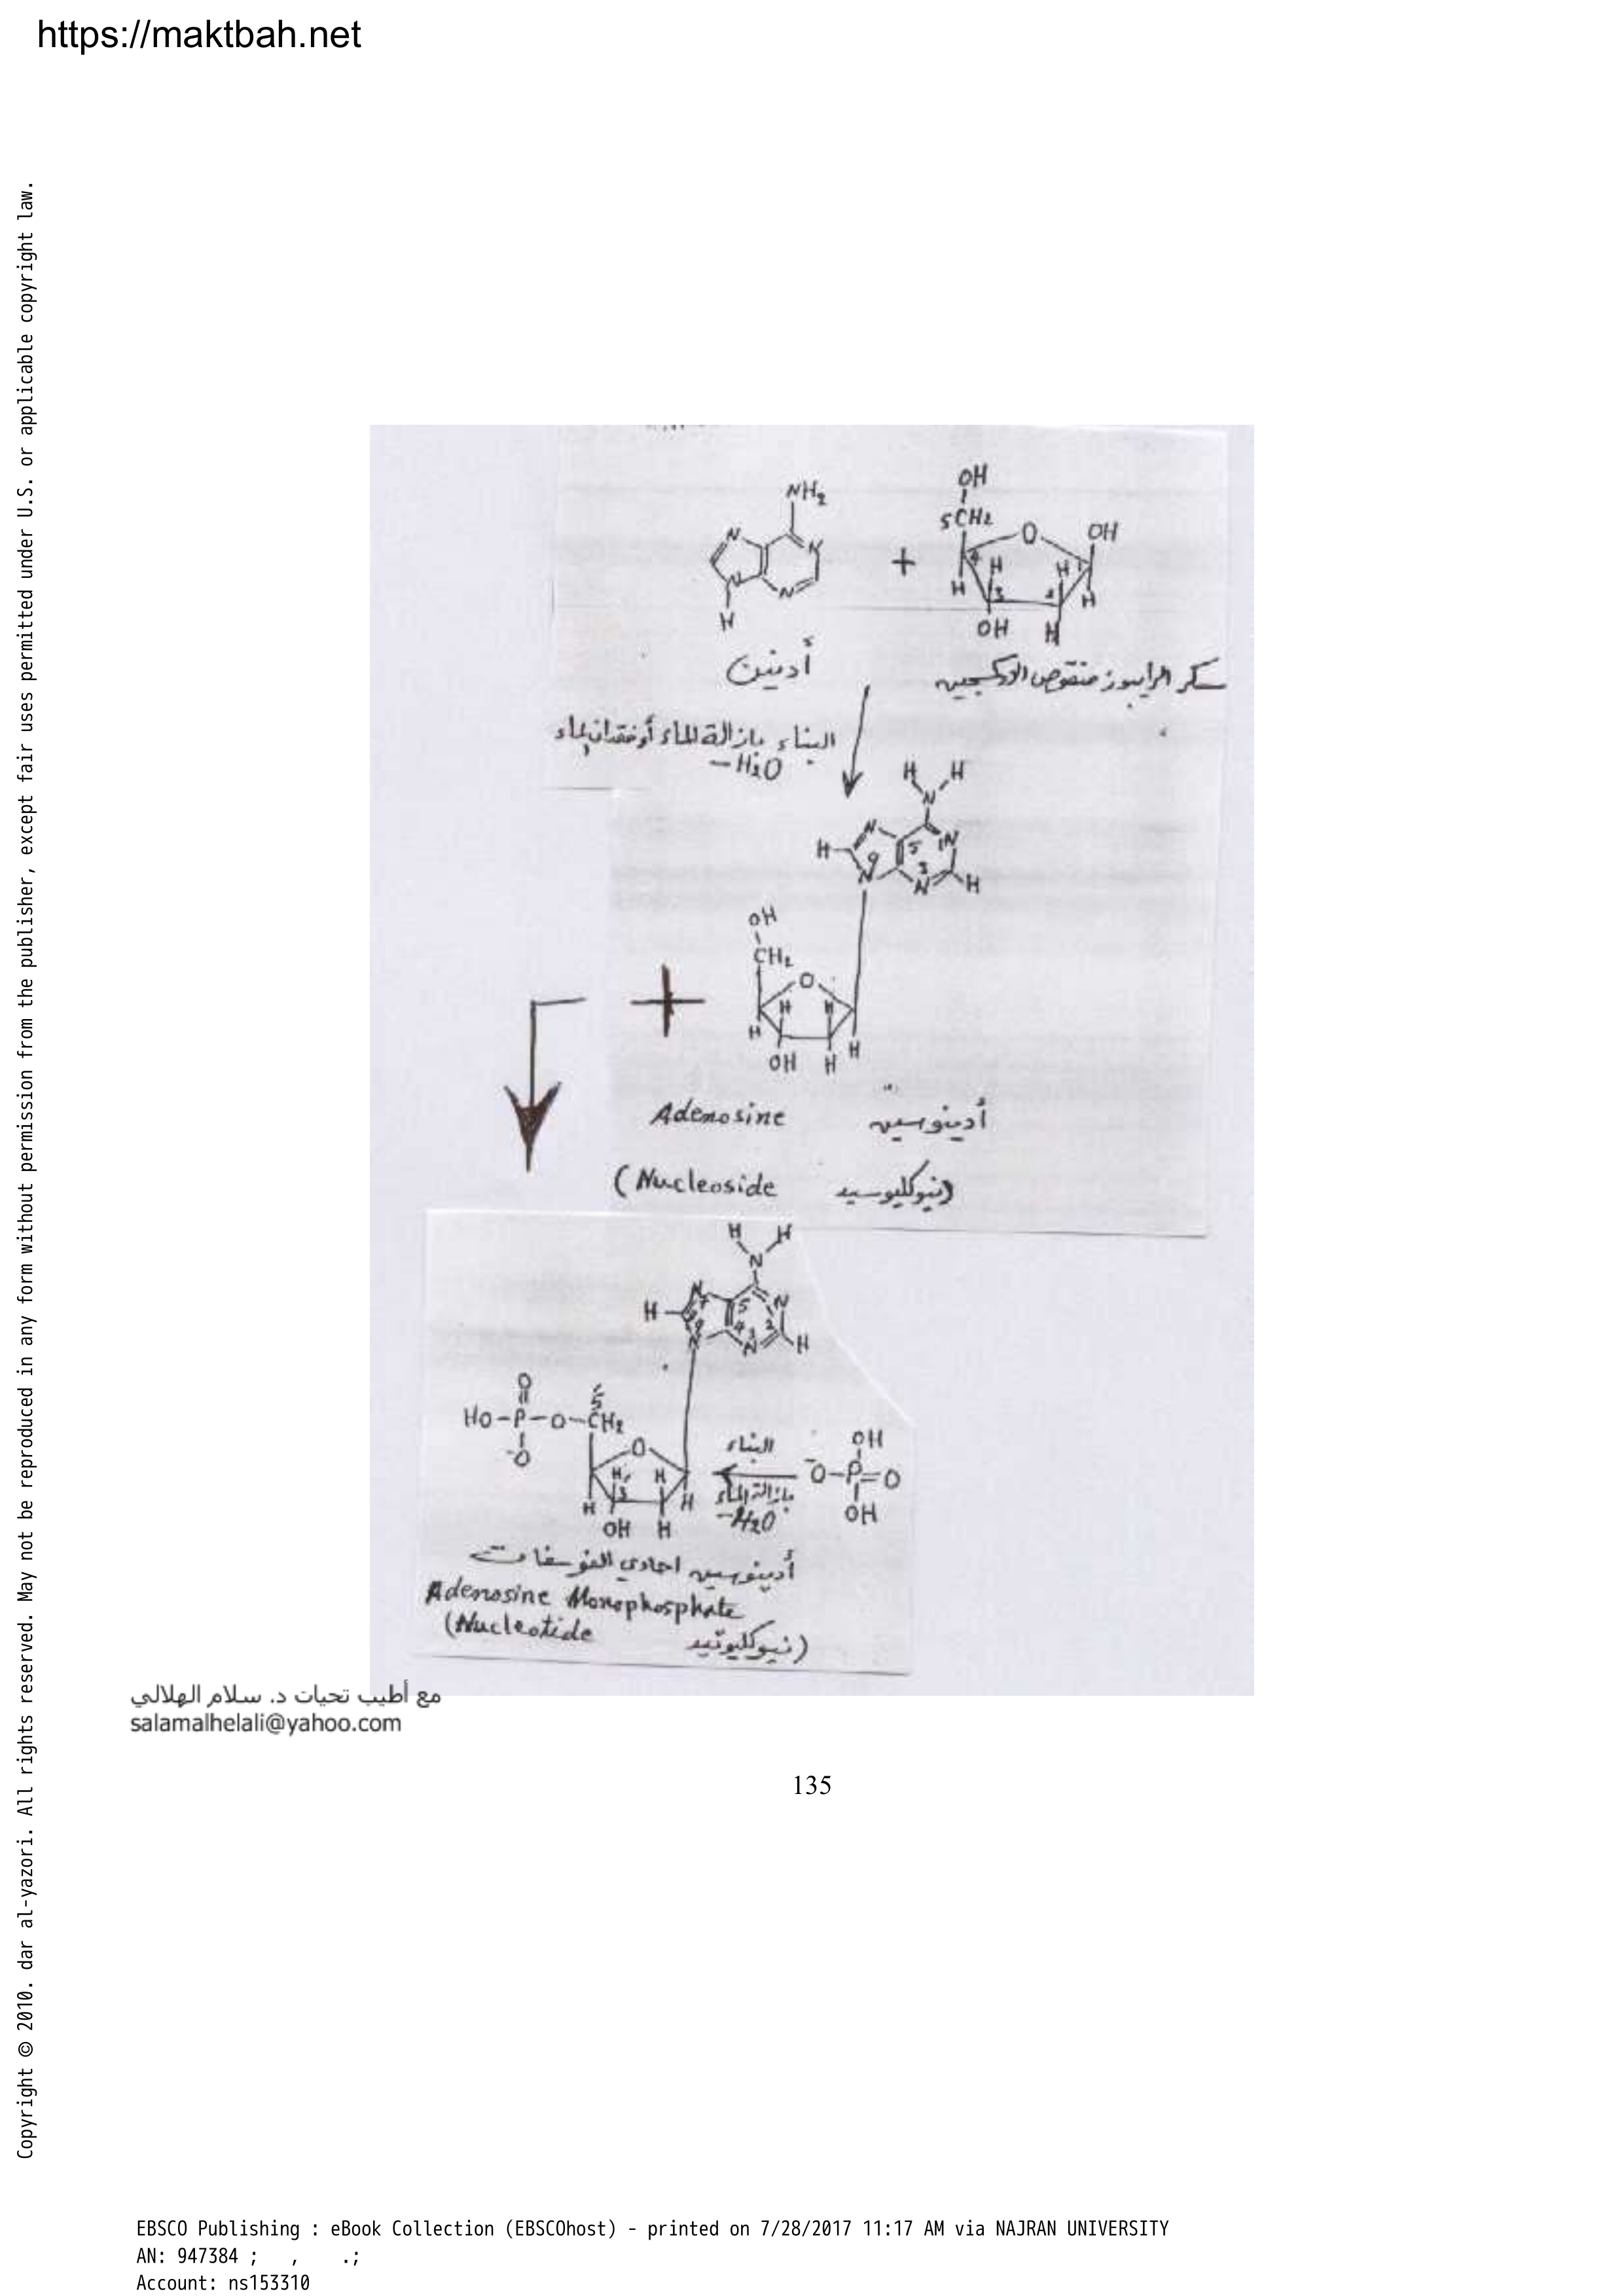 https://maktbah.net
Copyright © 2010. dar al-yazori. All rights reserved. May not be reproduced in any form without permission from the publisher, except fair uses permitted under U.S. or applicable copyright law.
NH2
N
N
N
N
H
أدينين
+
OH
5CH2
O
OH
4
H
H
1
H
3
2
H
OH
H
سكر الرايبوز منقوص الاوكسجين
البناء بازالة الماء أو فقدان الماء
-H2O
H H
N
N
N
5
1
H
9
3
N
N
H
OH
CH2
O
H
H
H
H
OH
H
+
Adenosine أدينوسين
(Nucleoside نيوكليوسيد)
H H
N
N
7
5
N
H
8
9
4
3
2
N
N
H
O
HO-P-O-CH2
5
-O
O
H
H
3
H
H
OH H
البناء
بازالة الماء
-H2O
OH
-O-P=O
OH
أدينوسين احادي الفوسفات
Adenosine Monophosphate
(Nucleotide نيوكليوتيد)
مع أطيب تحيات د. سلام الهلالي
salamalhelali@yahoo.com
135
EBSCO Publishing : eBook Collection (EBSCOhost) - printed on 7/28/2017 11:17 AM via NAJRAN UNIVERSITY
AN: 947384 ; , .;
Account: ns153310